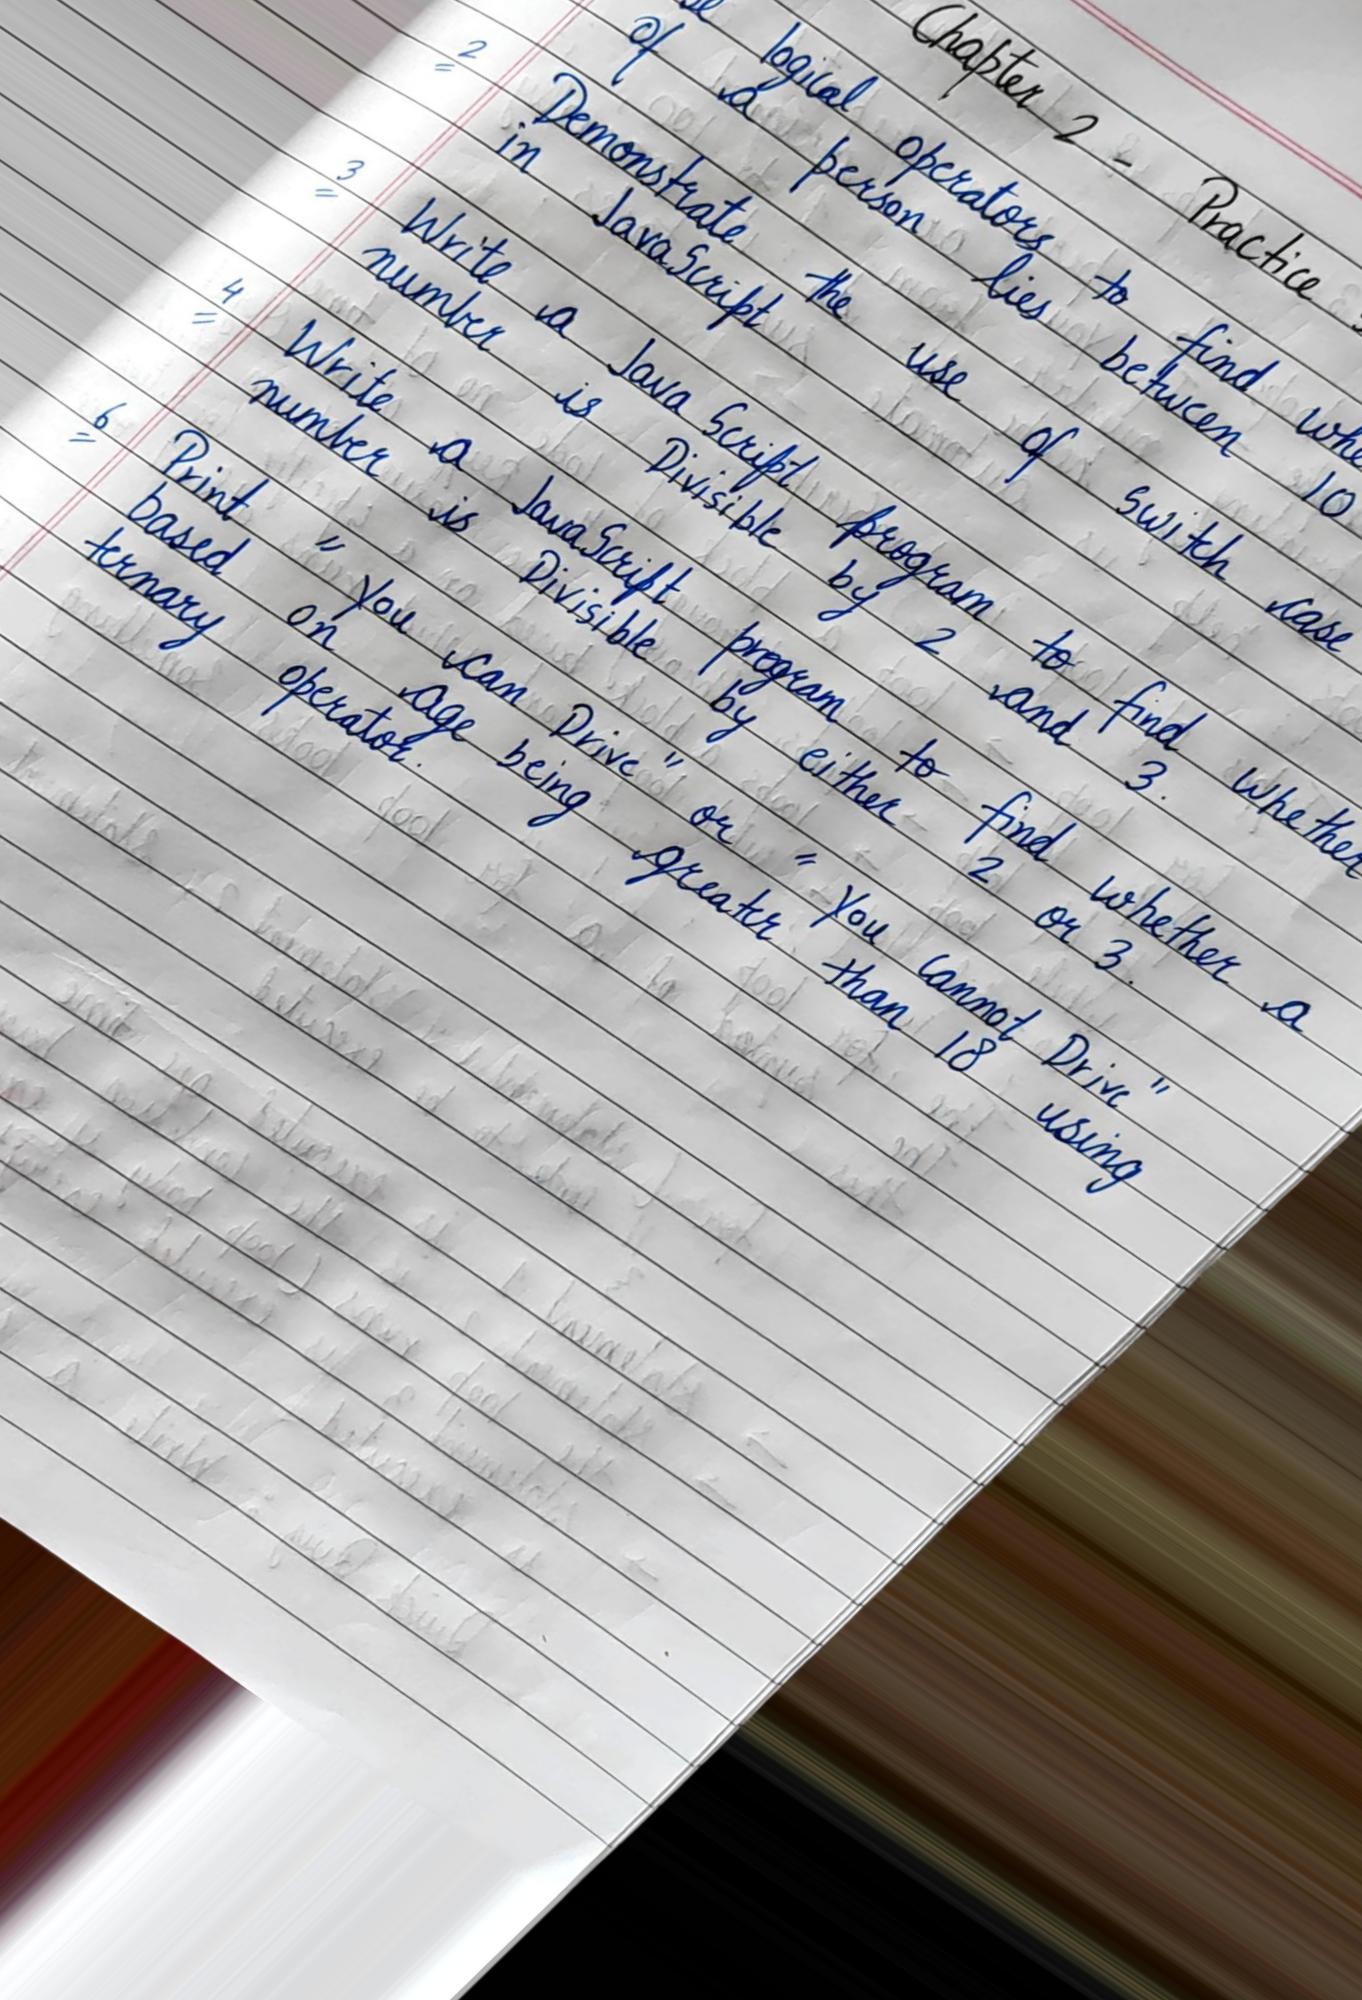 Chapter 2 - Practice
logical operators to find
of a person lies between 10
2 Demonstrate the use of switch case
in JavaScript
3 Write a JavaScript program to find whether
number is Divisible by 2 and 3.
4 Write a JavaScript program to find whether a
number is Divisible by either 2 or 3.
6 Print "You can Drive" or "You cannot Drive"
based on Age being greater than 18 using
ternary operator.